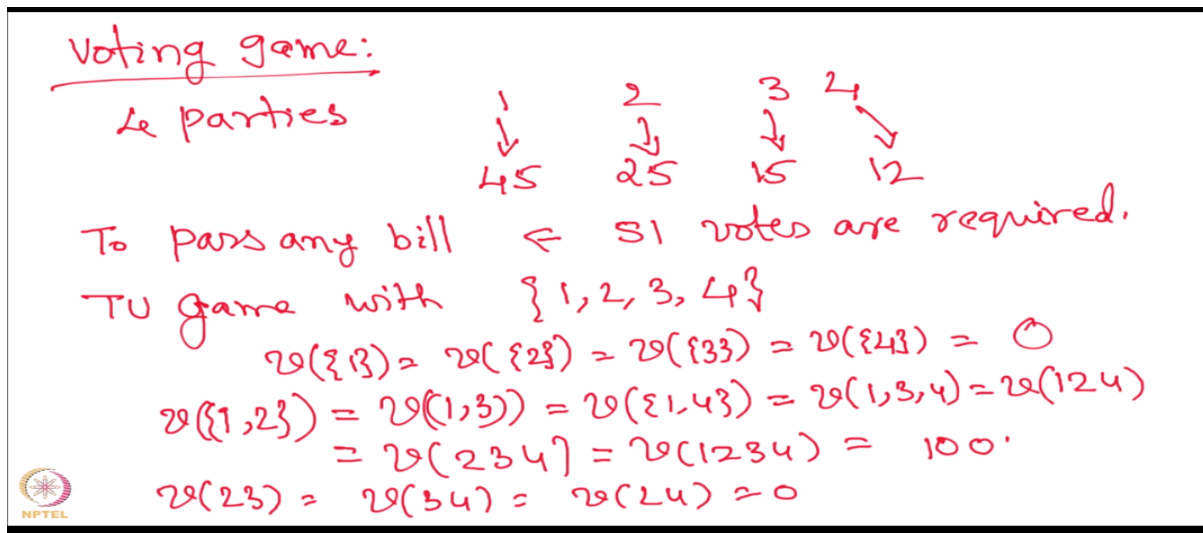 Voting game:
4 parties
1 2 3 4
↓ ↓ ↓ ↘
45 25 15 12
To pass any bill ← 51 votes are required.
TU game with {1, 2, 3, 4}
v({1}) = v({2}) = v({3}) = v({4}) = 0
v({1,2}) = v((1,3)) = v({1,4}) = v(1,3,4) = v(124)
= v(234) = v(1234) = 100.
v(23) = v(34) = v(24) = 0
NPTEL